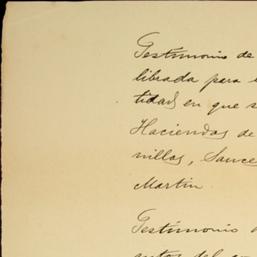 Testimonio de
librada para
tidad en que s
Haciendas de
nillas, Sauce
Martin
Testimonio d
autos del